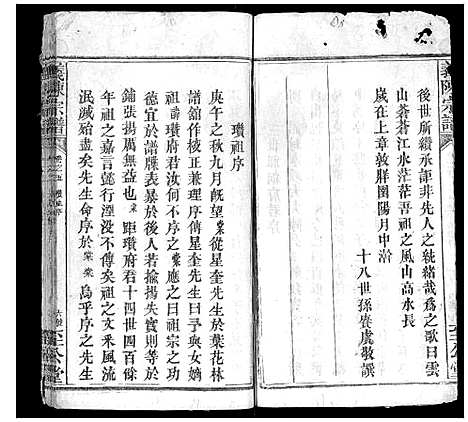 義陳宗譜
後世所纘承詎非先人之統緒哉為之歌曰雲
山蒼蒼江水茫茫吾祖之風山高水長
歲在上章敦牂圉陽月中澣
十八世孫賡虞敬撰
瓚祖序
庚午之秋九月既望棠從星奎先生於葉花林
譜舘作稜正兼理序傳星奎先生曰予與女嫡
祖諱瓚府君汝何不序之棠應之曰祖宗之功
德宜於譜牒表暴於後人若揄揚失實則等於
鋪張揚厲無益也棠距瓚府君十四世四百餘
年祖之嘉言懿行湮沒不傳矣祖之文采風流
泯滅殆盡矣先生命序於棠棠烏乎序之先生
義陳宗譜
卷之五
瓚祖序
至公堂